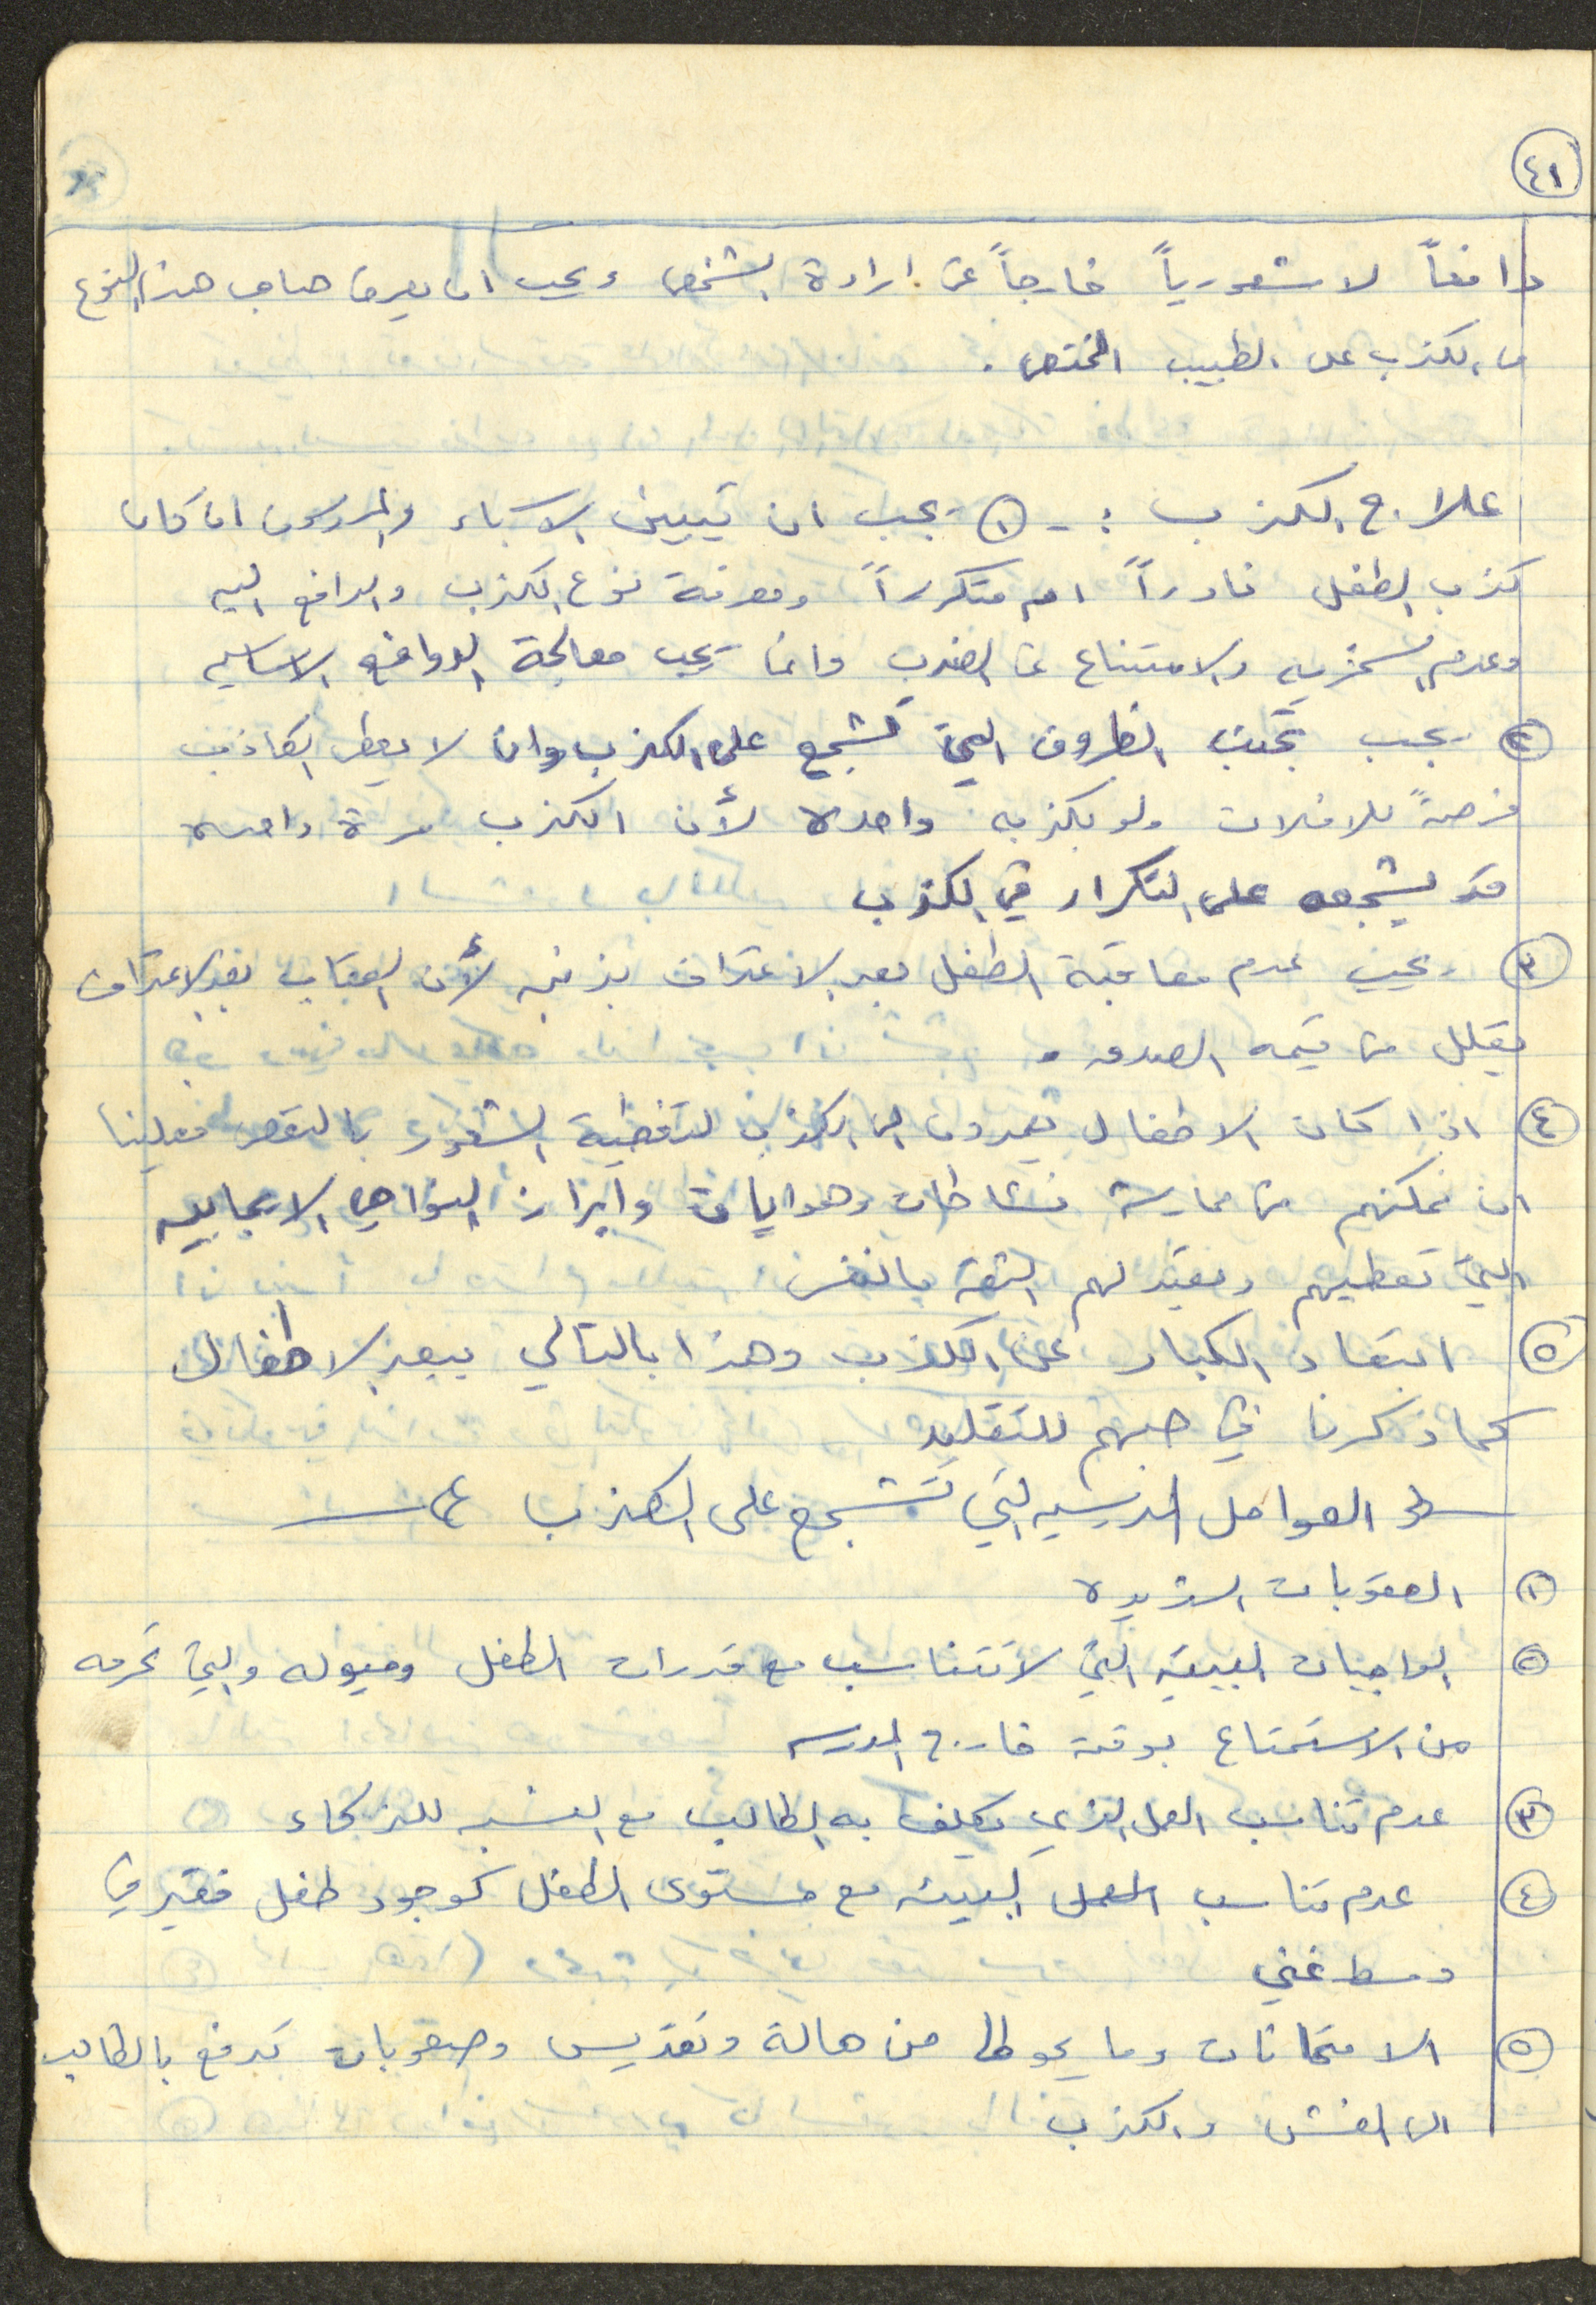 ٤١
دافعاً لا شعورياً خارجاً عن ارادة الشخص ويجب ان يعرض صاحب هذا النوع
من الكذب على الطبيب المختص .
علاج الكذب : - ١ يجب ان يتبين الاباء والمدرسون ان كان
كذب الطفل نادراً ام متكرراً ومعرفة نوع الكذب والدافع اليه
وعدم السخريه والامتناع عن الضرب وانما يجب معالجة الدوافع الاساسيه
٢ يجب تجنب الظروف التي تشجع على الكذب وان لا يعطى الكاذب
فرصةً للافلات ولو بكذبه واحده لأن الكذب مرة واحده
قد يشجعه على التكرار في الكذب
٣ يجب عدم معاقبة الطفل بعد الاعتراف بذنبه لأن العقاب بعد الاعتراف
يقلل من قيمه الصدق .
٤ اذا كان الاطفال يعمدون الى الكذب لتغطية الشعور بالنقص فعلينا
ان نمكنهم من ممارسة نشاطات وهوايات وابراز النواحي الايجابيه
التي تعطيهم وتعيد لهم الثقه بالنفس
٥ ابتعاد الكبار عن الكذب وهذا بالتالي يبعد الاطفال
كما ذكرنا في حبهم للتقليد
العوامل المدرسيه التي تشجع على الكذب
١ العقوبات الشديده
٢ الواجبات البيتيه التي لا تتناسب مع قدرات الطفل وميوله والتي تحرمه
من الاستمتاع بوقته خارج المدرسه
٣ عدم تناسب العمل الذي يكلف به الطالب مع النسبه للذكاء
٤ عدم تناسب العمل البيئه مع مستوى الطفل كوجود طفل فقير في
وسط غني
٥ الامتحانات وما يحوطها من هالة وتقديس وصعوبات تدفع بالطالب
الى الغش والكذب